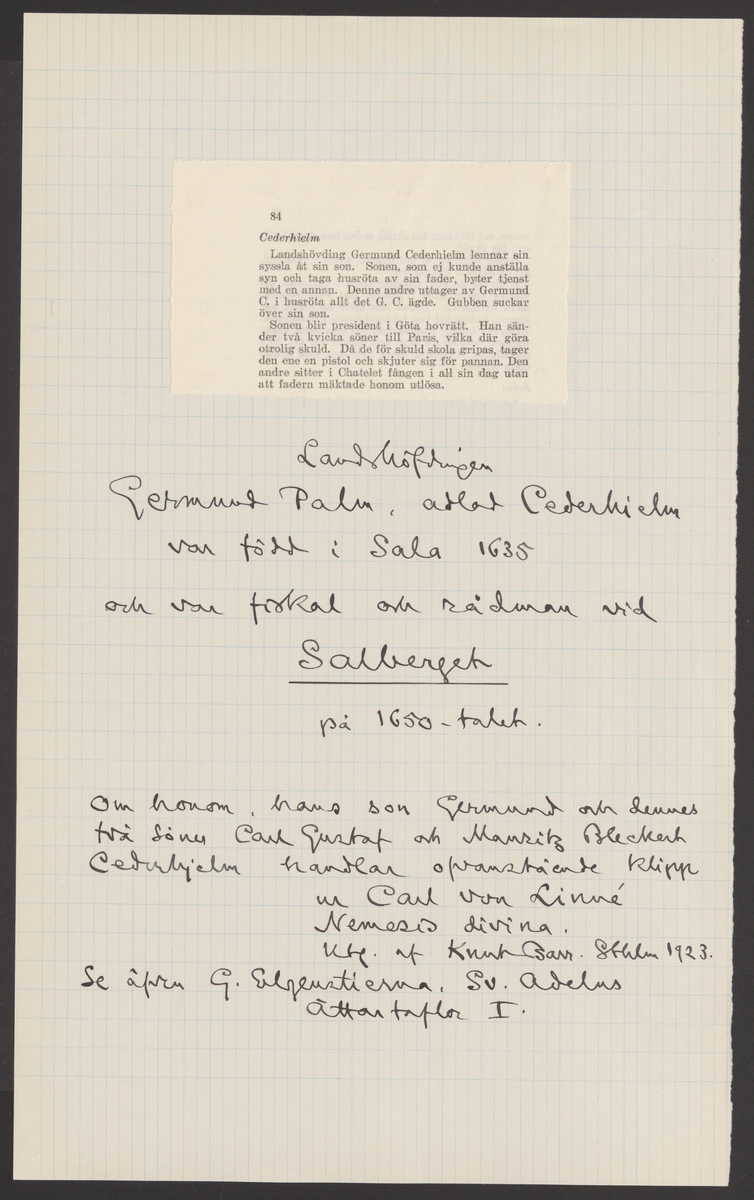 84
Cederhielm
Landshövding Germund Cederhielm lemnar sin
syssla åt sin son. Sonen, som ej kunde anställa
syn och taga husröta av sin fader, byter tjenst
med en annan. Denne andre uttager av Germund
C. i husröta allt det G. C. ägde. Gubben suckar
över sin son.
Sonen blir president i Göta hovrätt. Han sän-
der två kvicka söner till Paris, vilka där göra
otrolig skuld. Då de för skuld skola gripas, tager
den ene en pistol och skjuter sig för pannan. Den
andre sitter i Chatelet fången i all sin dag utan
att fadern mäktade honom utlösa.
Landshöfdingen
Germund Palm, adlad Cederhielm
var född i Sala 1635
och var fiskal och rådman vid
Salberget
på 1650-talet.
Om honom, hans son Germund och dennes
två söner Carl Gustaf och Mauritz Bleckert
Cederhjelm handlar ofvanstående klipp
ur Carl von Linné
Nemesis divina.
Utg. af Knut Barr. Sthlm 1923.
Se äfven G. Elgenstierna, Sv. Adelns
Ättartaflor I.